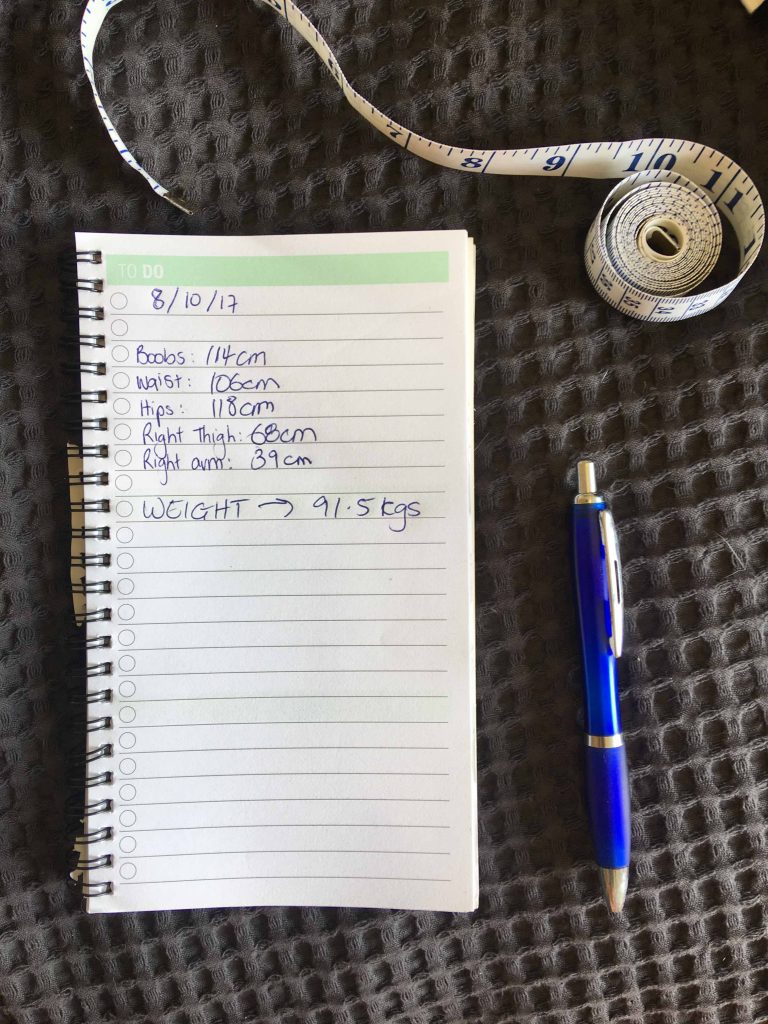 7
8
9
10
11
TO DO
8/10/17
Boobs: 114cm
Waist: 106cm
Hips: 118cm
Right Thigh: 68cm
Right arm: 39cm
WEIGHT → 91.5 kgs